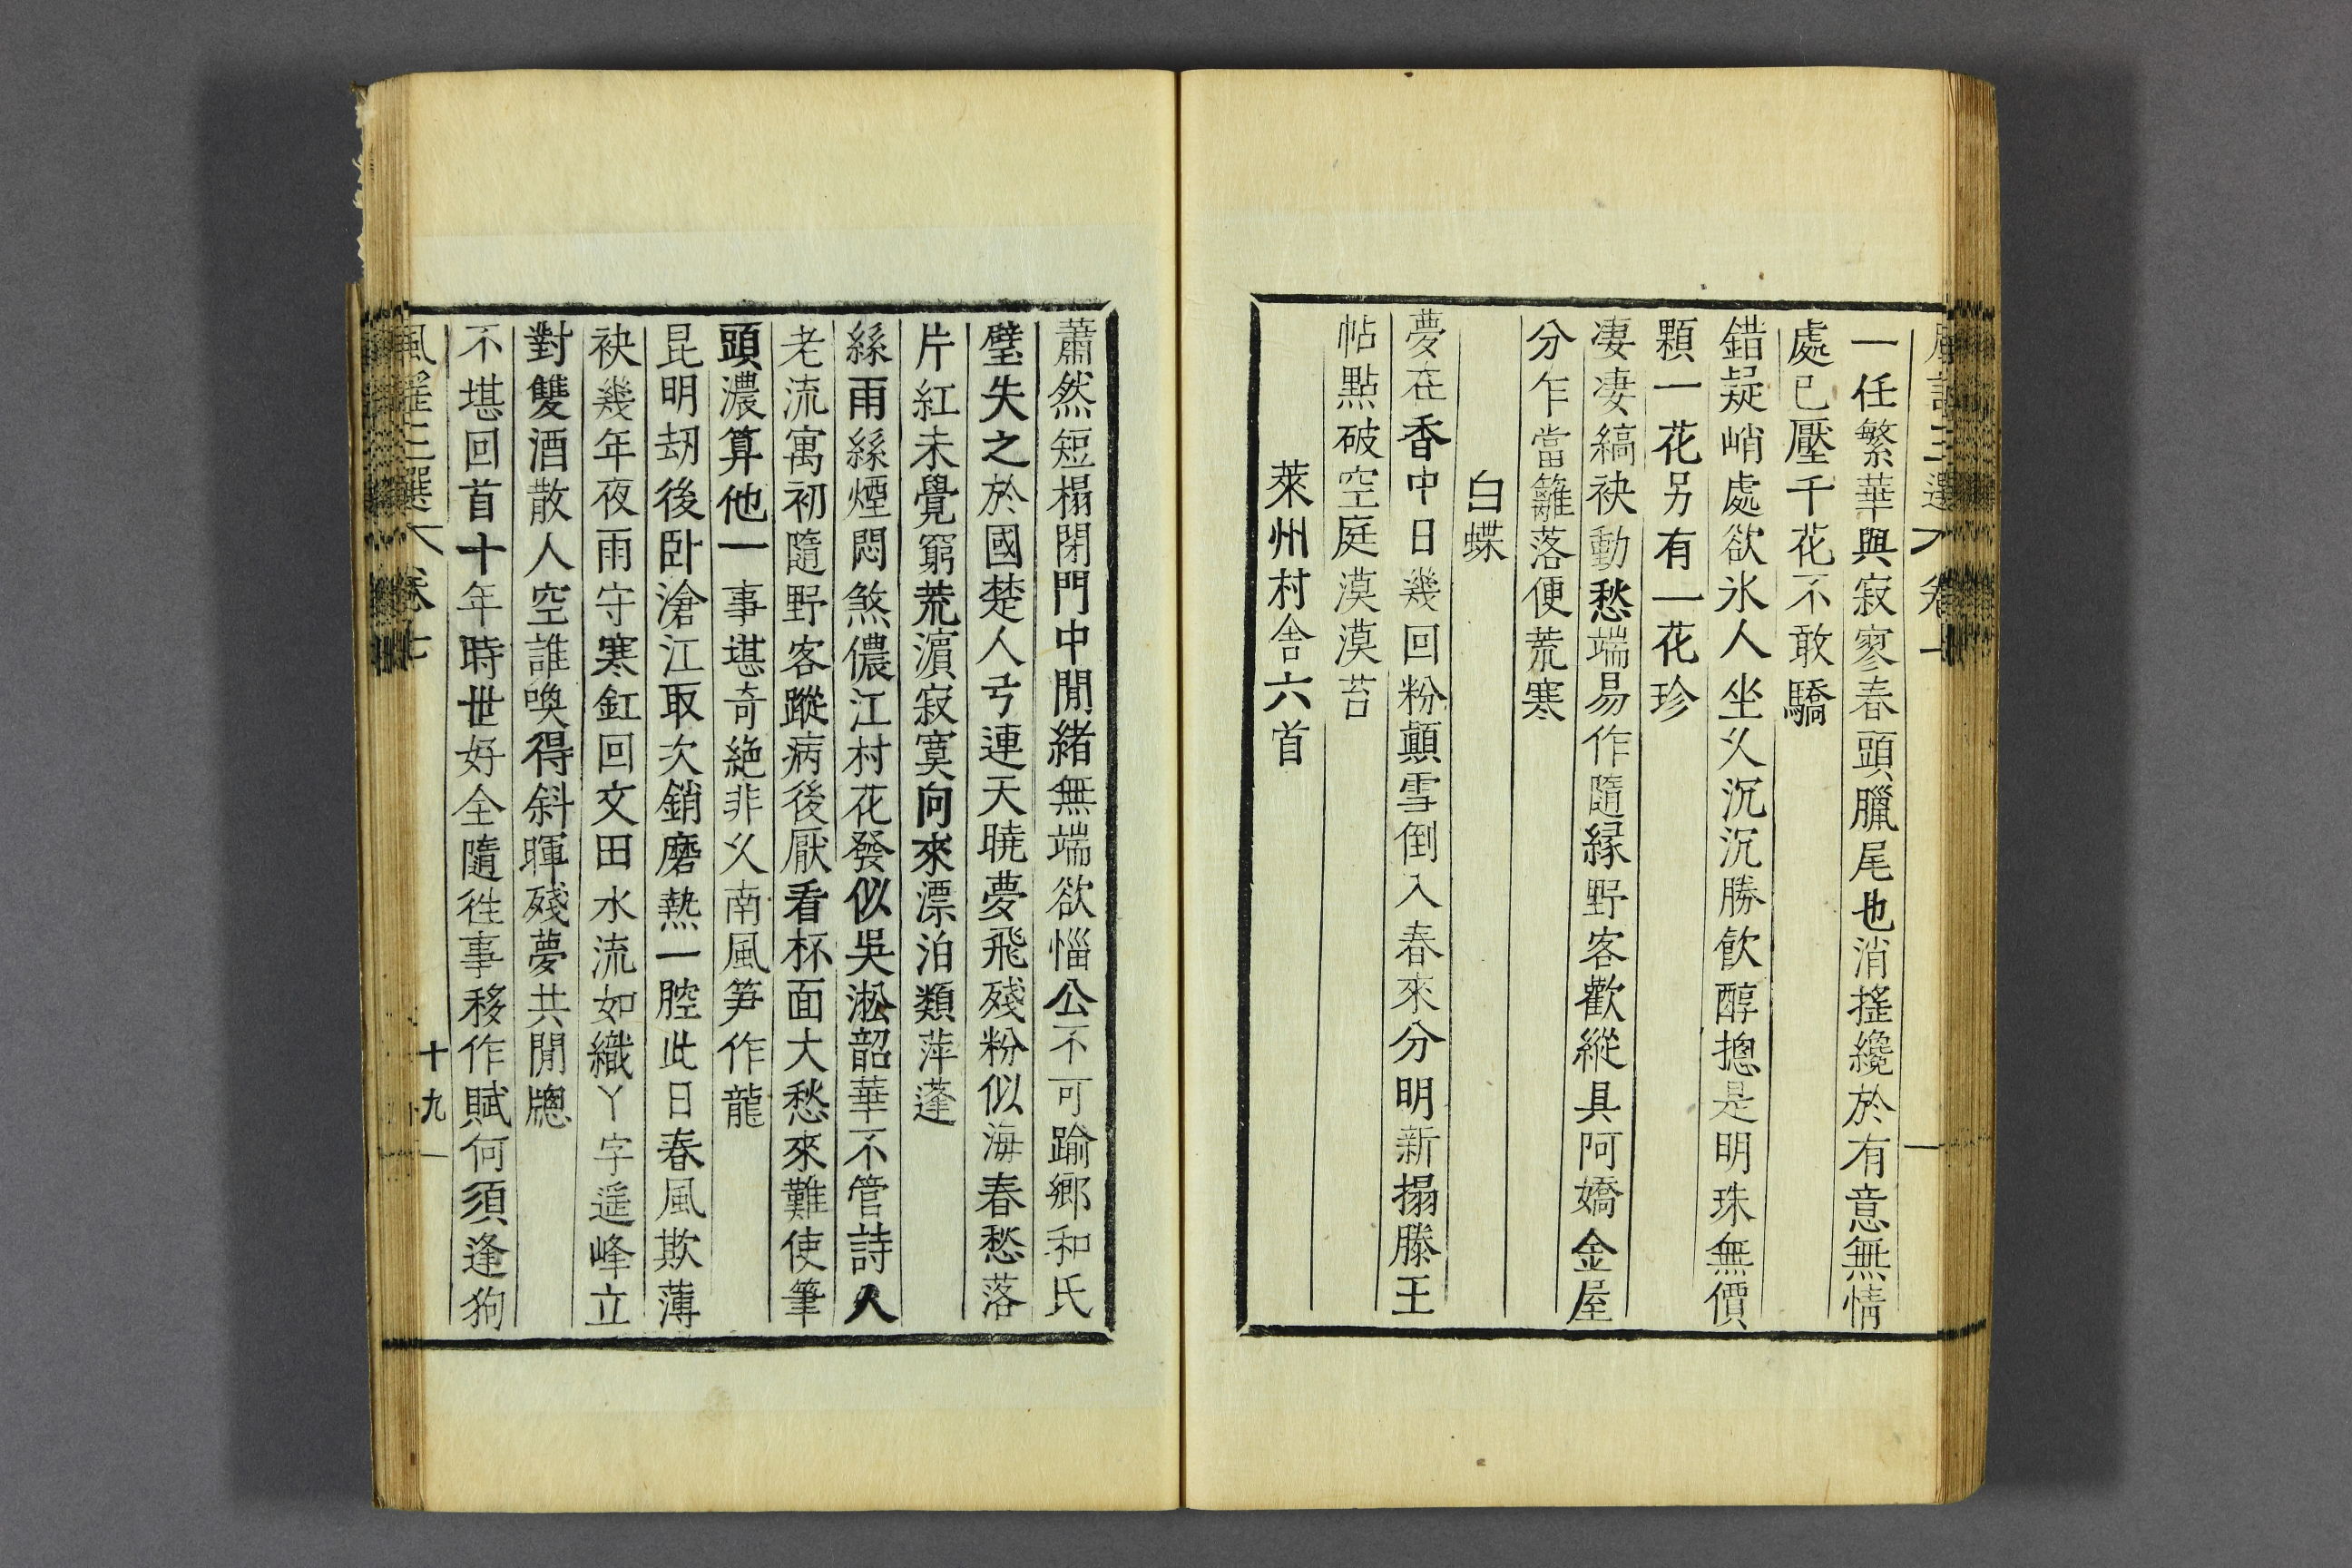 一任繁華與寂寥春頭臘尾也消搖纔於有意無情
處已壓千花不敢驕
錯疑峭處欲氷人坐乆沉沉勝飲醇摠是明珠無價
顆一花另有一花珍
凄凄縞袂動愁端易作隨縁野客歡縱具阿嬌金屋
分乍當籬落便荒寒
白蝶
夢在香中日幾回粉顚雪倒入春來分明新搨滕王
帖點破空庭漠漠苔
萊州村舍六首
蕭然短榻閉門中閒緒無端欲惱公不可踰鄉和氏
璧失之於國楚人弓連天曉夢飛殘粉似海春愁落
片紅未覺窮荒濵寂寞向來漂泊類萍蓬
絲雨絲煙悶煞儂江村花發似吳淞韶華不管詩人
老流寓初隨野客蹤病後厭看杯面大愁來難使筆
頭濃算他一事堪奇絶非乆南風笋作龍
昆明刼後卧滄江取次銷磨熱一腔此日春風欺薄
袂幾年夜雨守寒釭回文田水流如織丫字遥峰立
對雙酒散人空誰喚得斜暉殘夢共閒牕
不堪回首十年時世好全隨徃事移作賦何須逢狗
卷七
十九